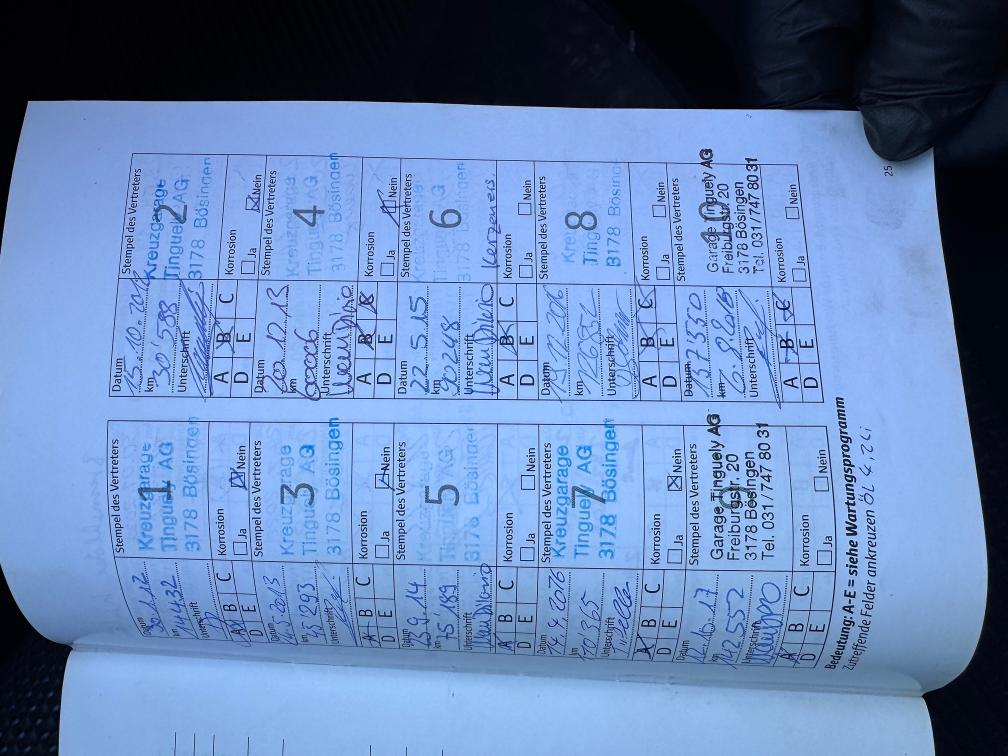 Stempel des Vertreters
Datum
Kreuzgarage
1
Tinguely AG
km
14432
3178 Bösingen
Unterschrift
A B C
D E
Korrosion
Ja
Nein
Stempel des Vertreters
Datum
15.10.2012
Kreuzgarage
2
Tinguely AG
km
30'588
3178 Bösingen
Unterschrift
A B C
D E
Korrosion
Ja
Nein
Stempel des Vertreters
Datum
Kreuzgarage
3
Tinguely AG
km
45293
3178 Bösingen
Unterschrift
A B C
D E
Korrosion
Ja
Nein
Stempel des Vertreters
Datum
20.12.13
Kreuzgarage
4
Tinguely AG
km
60006
3178 Bösingen
Unterschrift
A B C
D E
Korrosion
Ja
Nein
Stempel des Vertreters
Datum
25.9.14
5
Tinguely AG
km
75189
3178 Bösingen
Unterschrift
A B C
D E
Korrosion
Ja
Nein
Stempel des Vertreters
Datum
22.5.15
6
km
90248
3178 Bösingen
Unterschrift
Kerzers.
A B C
D E
Korrosion
Ja
Nein
Stempel des Vertreters
Datum
14.4.2016
Kreuzgarage
7
Tinguely AG
km
110365
3178 Bösingen
Unterschrift
A B C
D E
Korrosion
Ja
Nein
Stempel des Vertreters
Datum
8
km
126852
3178 Bösingen
Unterschrift
A B C
D E
Korrosion
Ja
Nein
Stempel des Vertreters
Datum
Garage Tinguely AG
Freiburgstr. 20
km
142552
3178 Bösingen
Unterschrift
Tel. 031/747 80 31
A B C
D E
Korrosion
Ja
Nein
Stempel des Vertreters
Datum
157330
Garage Tinguely AG
10
Freiburgstr. 20
km
3178 Bösingen
Unterschrift
Tel. 031/747 80 31
A B C
D E
Korrosion
Ja
Nein
Bedeutung: A-E = siehe Wartungsprogramm
Zutreffende Felder ankreuzen
ÖL 4,2Li
25